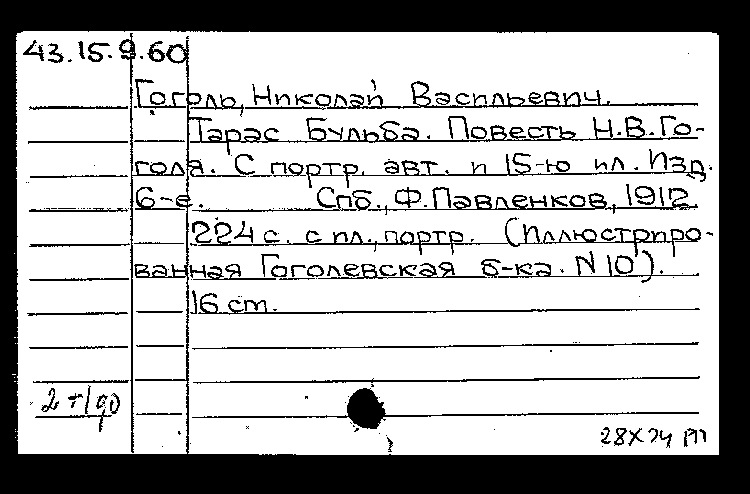 43.15.9.60
Гоголь, Николай Васильевич.
Тарас Бульба. Повесть Н.В.Го-
голя. С портр. авт. и 15-ю ил. Изд.
6-е. Спб., Ф.Павленков, 1912.
224 с. с ил., портр. (Иллюстриро-
ванная Гоголевская б-ка. N 10).
16 cm.